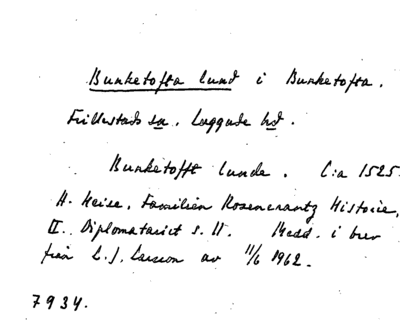 Bunketofta lund i Bunketofta.
Fillestads sn. Luggude hd.
Bunketofft lunde. C:a 1525.
A. Heise, Familien Rosencrantz Historie,
II. Diplomatariet s. 11. Medd. i brev
från L. J. Larsson av 11/6 1962.
7934.